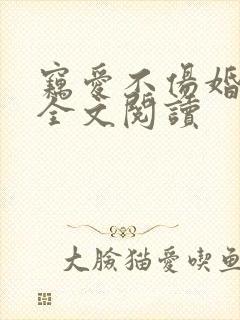 竊愛不傷婚
全文閱讀
大臉猫愛喫鱼